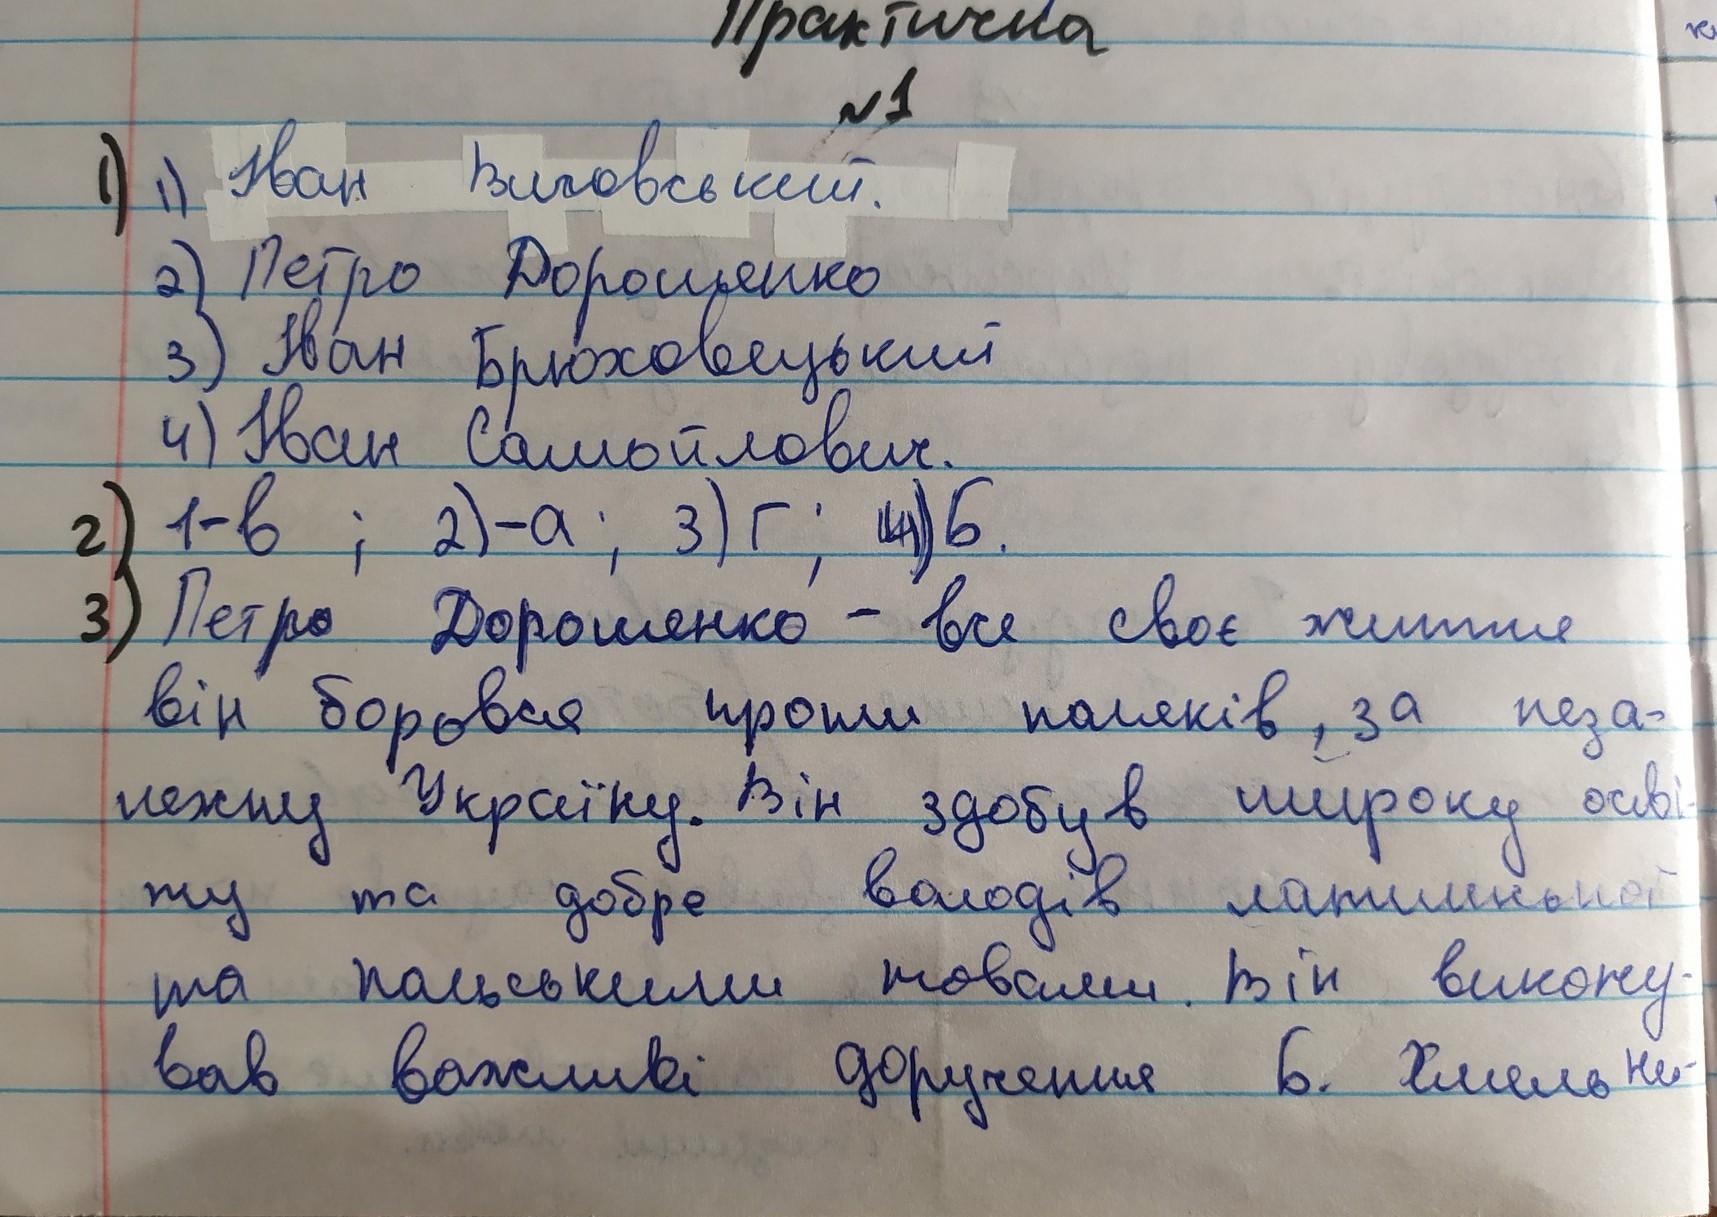 Практична
№1
1) 1) Іван Виговський.
2) Петро Дорошенко
3) Іван Брюховецький
4) Іван Самойлович.
2) 1-в ; 2)-а ; 3) Г ; 4) Б.
3) Петро Дорошенко - все своє життя
він боровся проти поляків, за неза-
лежну Україну. Він здобув широку осві-
ту та добре володів латинською
та польськими мовами. Він викону-
вав важливі доручення Б. Хмельни-